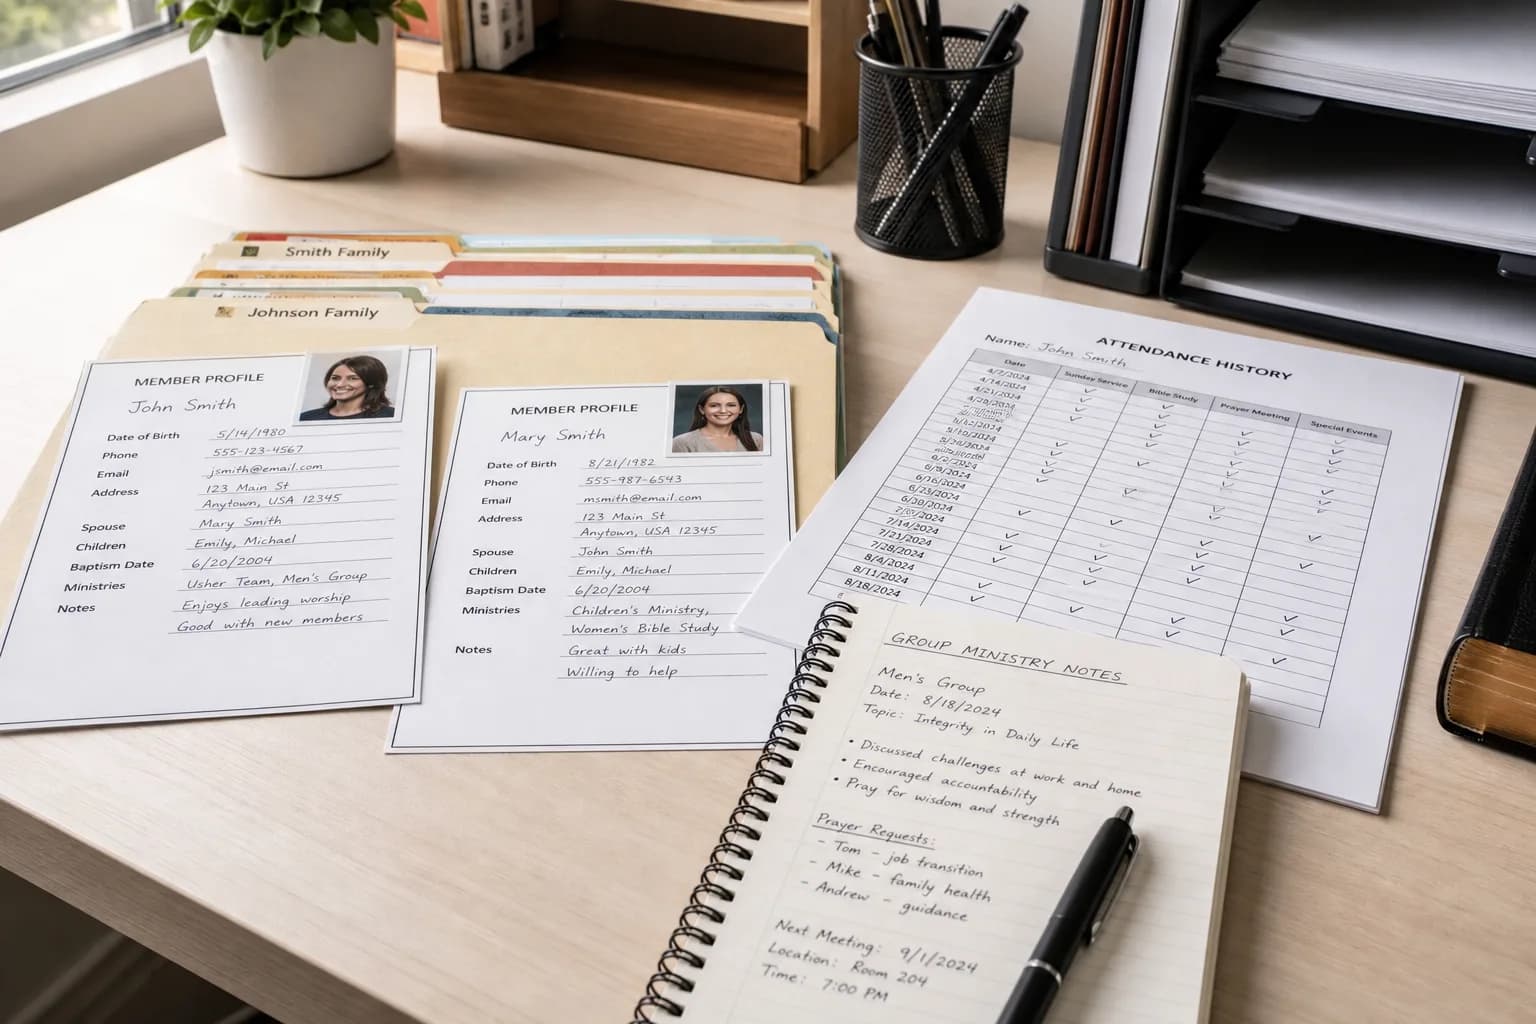 Smith Family
Johnson Family
MEMBER PROFILE
John Smith
Date of Birth 5/14/1980
Phone 555-123-4567
Email jsmith@email.com
Address 123 Main St
Anytown, USA 12345
Spouse Mary Smith
Children Emily, Michael
Baptism Date 6/20/2004
Ministries Usher Team, Men's Group
Notes Enjoys leading worship
Good with new members
MEMBER PROFILE
Mary Smith
Date of Birth 8/21/1982
Phone 555-987-6543
Email msmith@email.com
Address 123 Main St
Anytown, USA 12345
Spouse John Smith
Children Emily, Michael
Baptism Date 6/20/2004
Ministries Children's Ministry,
Women's Bible Study
Notes Great with kids
Willing to help
ATTENDANCE HISTORY
Name: John Smith
Date Sunday Service Bible Study Prayer Meeting Special Events
4/7/2024
4/14/2024
4/21/2024
4/28/2024
6/2/2024
6/9/2024
6/16/2024
6/23/2024
6/30/2024
7/14/2024
7/21/2024
7/28/2024
8/4/2024
8/11/2024
8/18/2024
GROUP MINISTRY NOTES
Men's Group
Date: 8/18/2024
Topic: Integrity in Daily Life
• Discussed challenges at work and home
• Encouraged accountability
• Pray for wisdom and strength
Prayer Requests:
- Tom - job transition
- Mike - family health
- Andrew - guidance
Next Meeting: 9/1/2024
Location: Room 204
Time: 7:00 PM